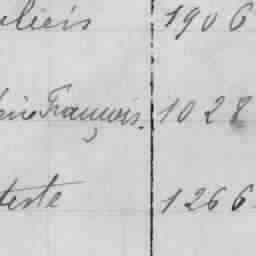 uliers 1906
François. 1028
teste 1266